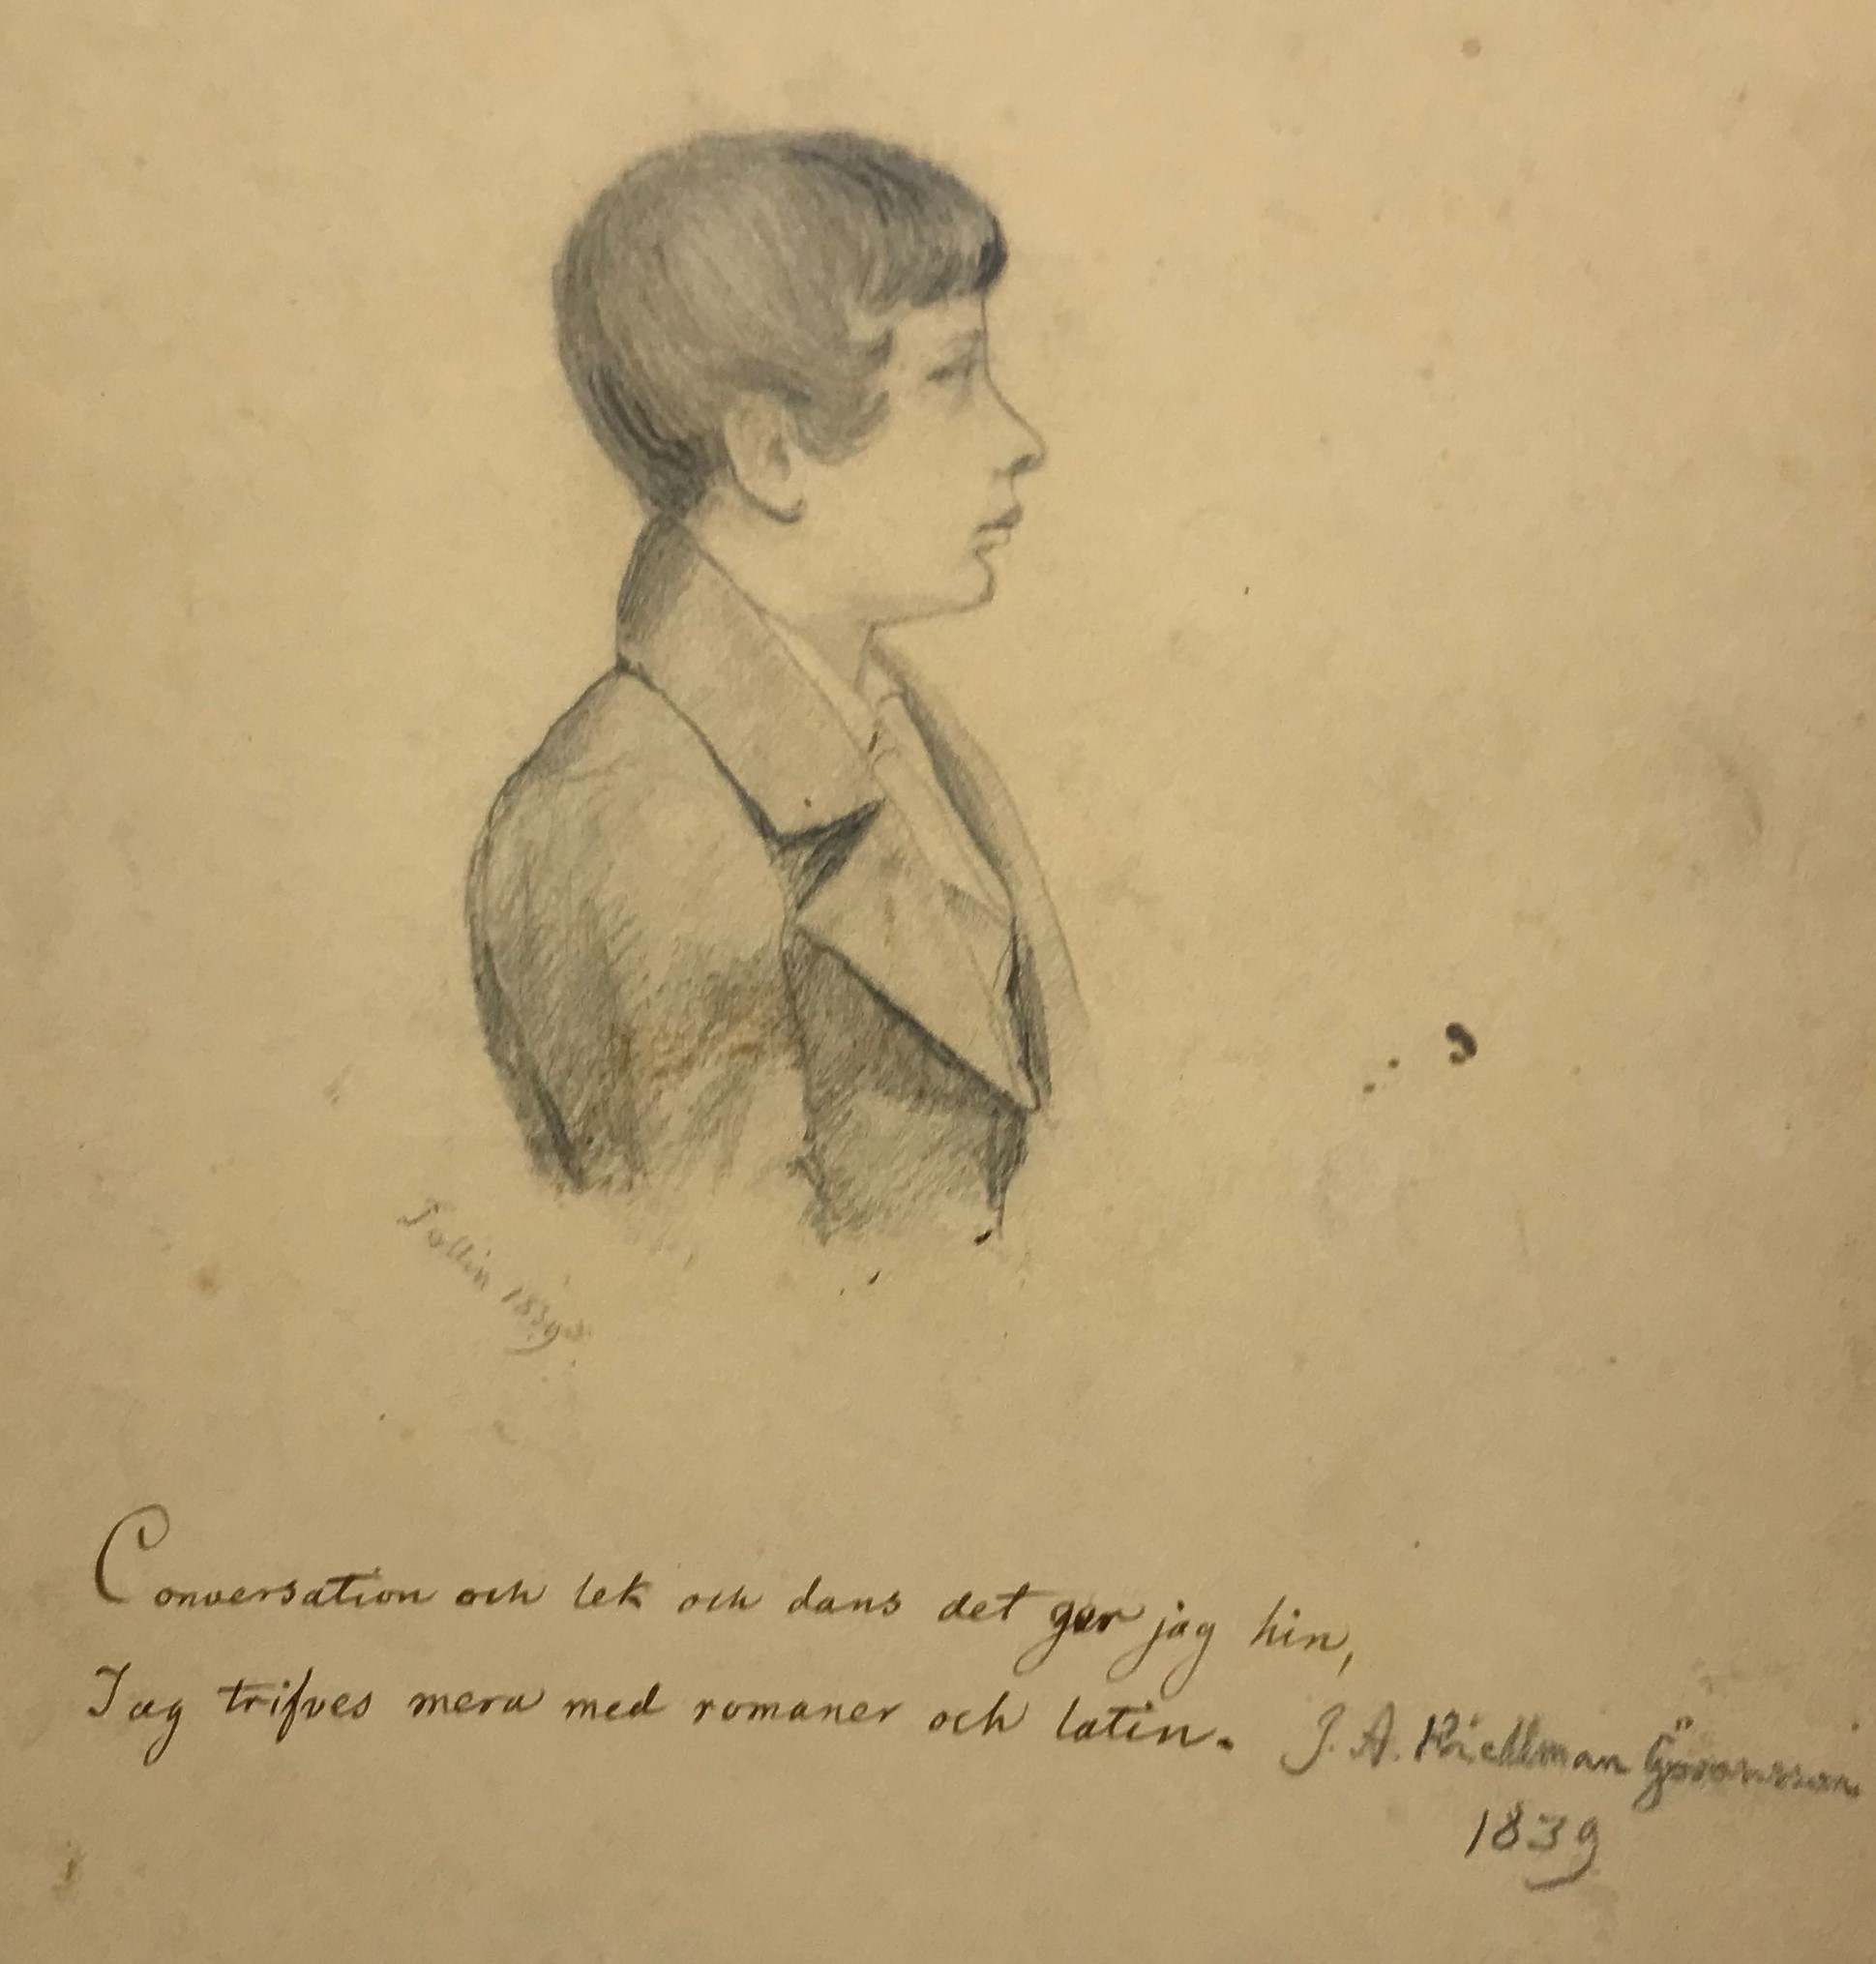 Tollin 1839
Conversation och lek och dans det ger jag hin,
Jag trifves mera med romaner och latin.
J. A. Kiellman Göransson
1839